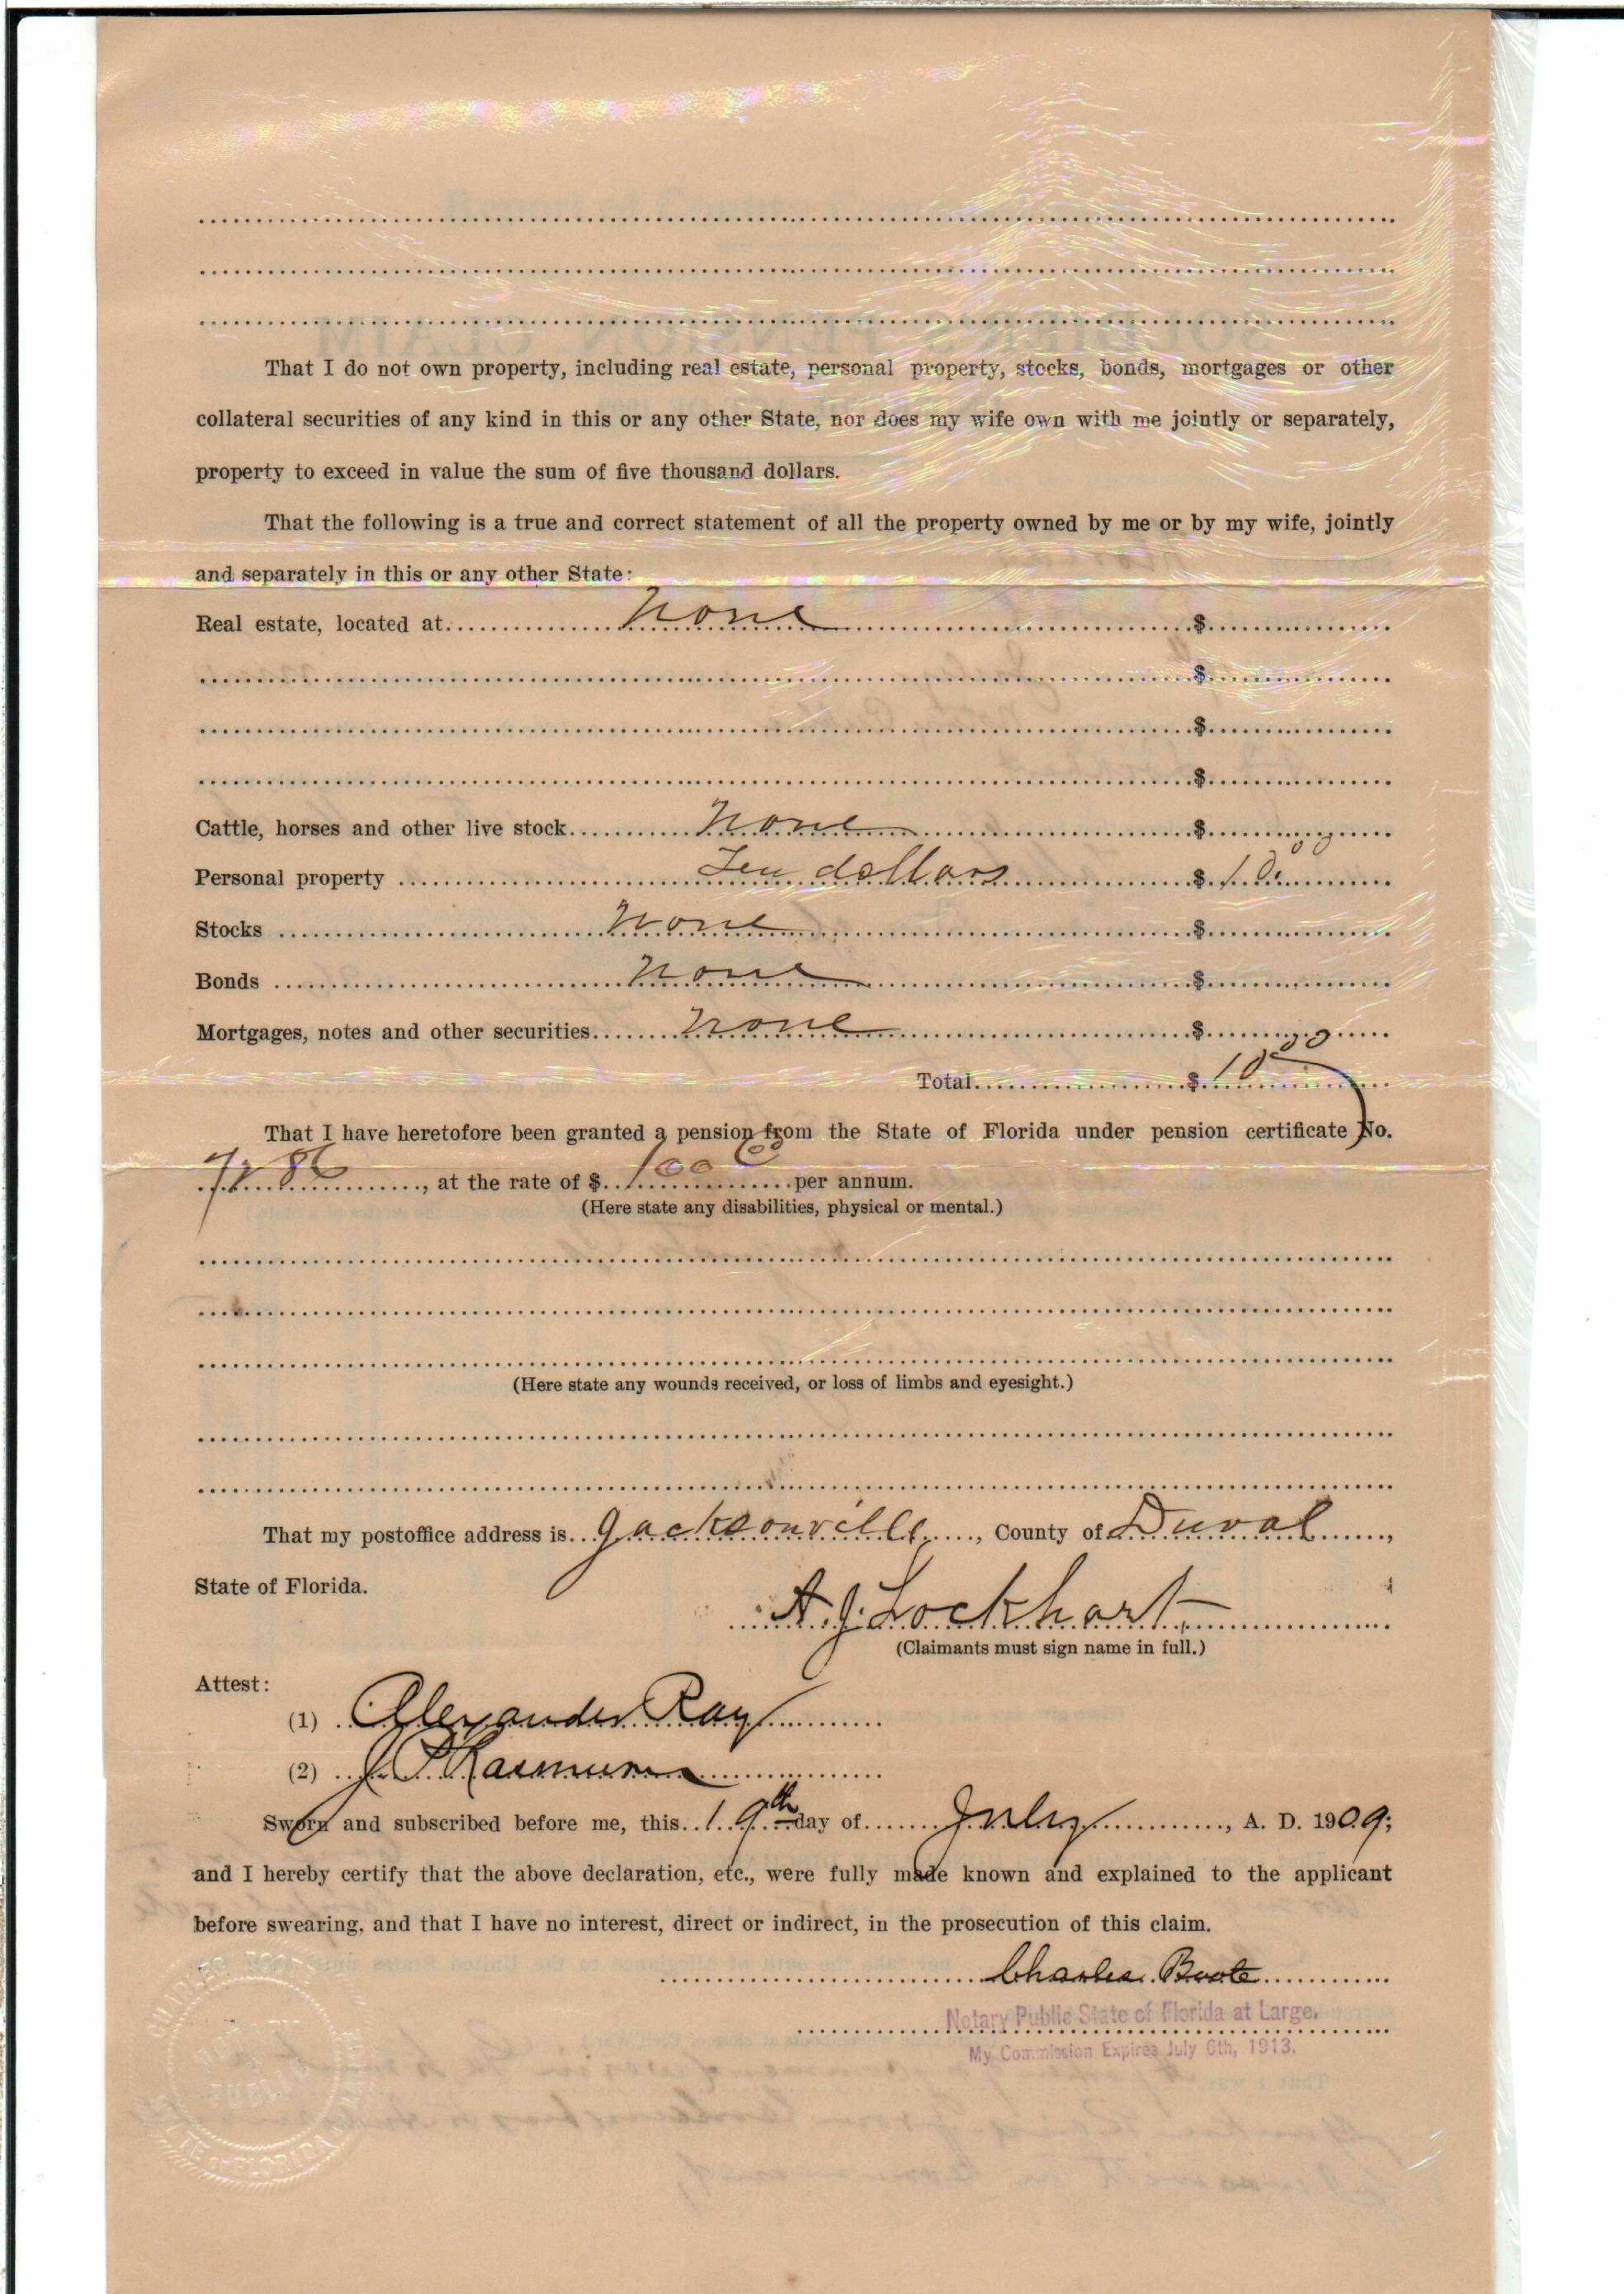 That I do not own property, including real estate, personal property, stocks, bonds, mortgages or other
collateral securities of any kind in this or any other State, nor does my wife own with me jointly or separately,
property to exceed in value the sum of five thousand dollars.
That the following is a true and correct statement of all the property owned by me or by my wife, jointly
and separately in this or any other State:
Real estate, located at None $
$
$
$
Cattle, horses and other live stock None $
Personal property Ten dollars $ 10.00
Stocks None $
Bonds None $
Mortgages, notes and other securities None $
Total $ 10 00
That I have heretofore been granted a pension from the State of Florida under pension certificate No.
, at the rate of $ 100 00 per annum.
(Here state any disabilities, physical or mental.)
(Here state any wounds received, or loss of limbs and eyesight.)
That my postoffice address is Jacksonville, County of Duval,
State of Florida.
A. J. Lockhart
(Claimants must sign name in full.)
Attest:
(1) Alexander Ray
(2) J. P.
Sworn and subscribed before me, this 19th day of July, A. D. 1909;
and I hereby certify that the above declaration, etc., were fully made known and explained to the applicant
before swearing, and that I have no interest, direct or indirect, in the prosecution of this claim.
Charles Boote
Notary Public State of Florida at Large.
My Commission Expires July 6th, 1913.